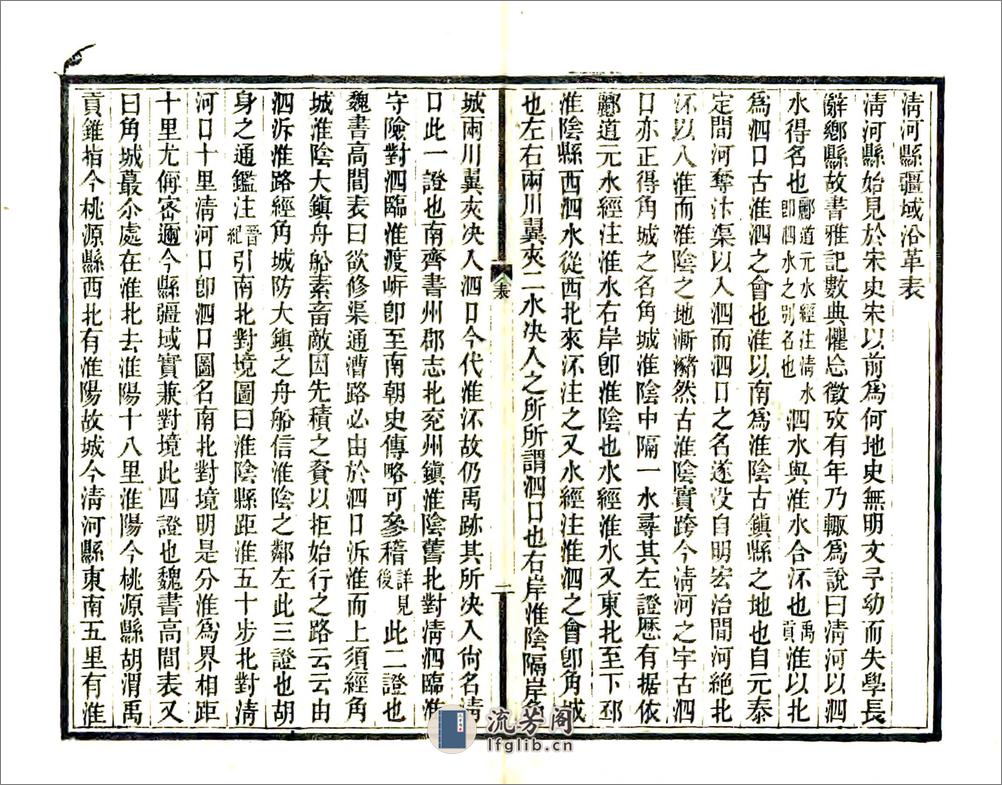 清河縣疆域沿革表
清河縣始見於宋史宋以前爲何地史無明文予幼而失學長
辭鄉縣故書雅記數典懼忘徵攷有年乃輒爲說曰清河以泗
水得名也酈道元水經注清水卽泗水之別名也泗水與淮水合於也禹貢淮以北
爲泗口古淮泗之會也淮以南爲淮陰古鎮縣之地也自元泰
定間河奪汴渠以入泗而泗口之名遂没自明宏治間河絶北
以入淮而淮陰之地漸瀦然古淮陰實跨今清河之宇古泗
口亦正得角城之名角城淮陰中隔一水尋其左證厯有据依
酈道元水經注淮水右岸卽淮陰也水經淮水又東北至下邳
淮陰縣西泗水從西北來注之又水經注淮泗之會卽角城
也左右兩川翼夾二水决入之所所謂泗口也右岸淮陰隔岸角
表
二
城兩川翼夾决入泗口今代淮故仍禹跡其所决入尙名清
口此一證也南齊書州郡志北兗州鎮淮陰舊北對清泗臨淮
守險對泗臨淮渡岍卽至南朝史傳略可參稽詳見後此二證也
魏書高閭表曰欲修渠通漕路必由於泗口泝淮而上須經角
城淮陰大鎮舟船素畜敵因先積之資以拒始行之路云云由
泗泝淮路經角城防大鎮之舟船信淮陰之鄰左此三證也胡
身之通鑑注晉紀引南北對境圖曰淮陰縣距淮五十步北對清
河口十里清河口卽泗口圖名南北對境明是分淮爲界相距
十里尤㑥密邇今縣疆域實兼對境此四證也魏書高閭表又
曰角城蕞尒處在淮北去淮陽十八里淮陽今桃源縣胡渭禹
貢錐指今桃源縣西北有淮陽故城今清河縣東南五里有淮
流芳阁
lfglib.cn